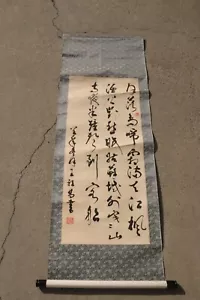 月落烏啼霜滿天江楓
漁火對愁眠姑蘇城外寒山
寺夜半鐘聲到客船
書